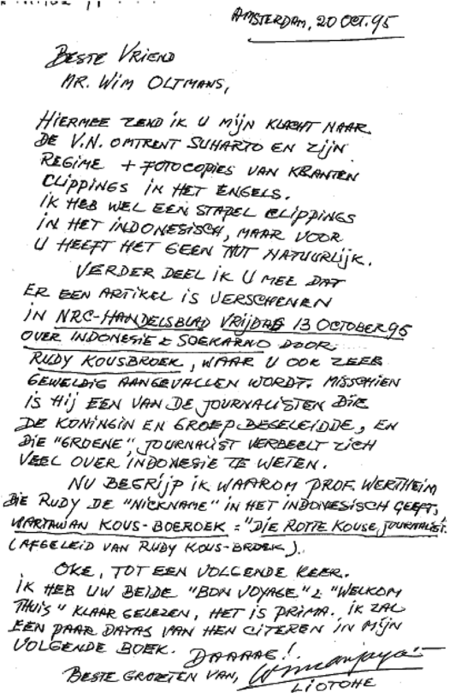 AMSTERDAM, 20 OCT. 95
BESTE VRIEND
MR. WIM OLTMANS,
HIERMEE ZEND IK U MIJN KLACHT NAAR
DE V.N. OMTRENT SUHARTO EN ZIJN
REGIME + FOTOCOPIES VAN KRANTEN
CLIPPINGS IN HET ENGELS.
IK HEB WEL EEN STAPEL CLIPPINGS
IN HET INDONESISCH, MAAR VOOR
U HEEFT HET GEEN NUT NATUURLIJK.
VERDER DEEL IK U MEE DAT
ER EEN ARTIKEL IS VERSCHENEN
IN NRC-HANDELSBLAD VRIJDAG 13 OCTOBER 95
OVER INDONESIE & SOEKARNO DOOR
RUDY KOUSBROEK, WAAR U OOK ZEER
GEWELDIG AANGEVALLEN WORDT. MISSCHIEN
IS HIJ EEN VAN DE JOURNALISTEN DIE
DE KONINGIN EN GROEP BEGELEIDDE, EN
DIE "GROENE" JOURNALIST VERBEELT ZICH
VEEL OVER INDONESIE TE WETEN.
NU BEGRIJP IK WAAROM PROF. WERTHEIM
DIE RUDY DE "NICKNAME" IN HET INDONESISCH GEEFT,
WARTAWAN KOUS-BOEROEK = "DIE ROTTE KOUSE JOURNALIST".
(AFGELEID VAN RUDY KOUS-BROEK).
OKE, TOT EEN VOLGENDE KEER.
IK HEB UW BEIDE "BON VOYAGE" & "WELKOM
THUIS" KLAAR GELEZEN, HET IS PRIMA. IK ZAL
EEN PAAR DATAS VAN HEN CITEREN IN MIJN
VOLGENDE BOEK. DAAAAG!
BESTE GROETEN VAN,
LIOTOHE